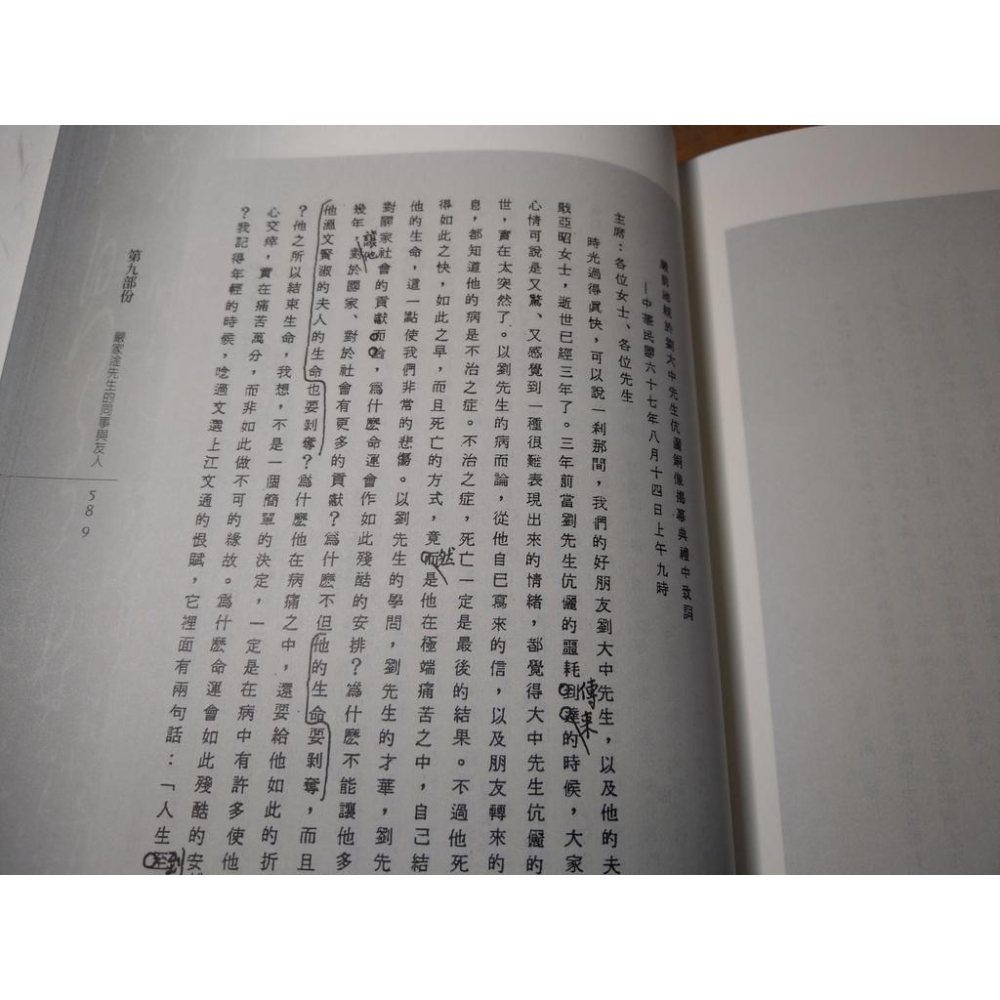 嚴前總統於劉大中先生伉儷銅像揭幕典禮中致詞
—中華民國六十七年八月十四日上午九時
主席:各位女士、各位先生
時光過得眞快,可以說一剎那間,我們的好朋友劉大中先生,以及他的夫
戢亞昭女士,逝世已經三年了。三年前當劉先生伉儷的噩耗到達的時候,大家
傳來
心情可說是又驚、又感覺到一種很難表現出來的情緒,都覺得大中先生伉儷的
世,實在太突然了。以劉先生的病而論,從他自己寫來的信,以及朋友轉來的
息,都知道他的病是不治之症。不治之症,死亡一定是最後的結果。不過他死
得如此之快,如此之早,而且死亡的方式,竟而是他在極端痛苦之中,自己結
然
他的生命,這一點使我們非常的悲傷。以劉先生的學問,劉先生的才華,劉先
對國家社會的貢獻而論,爲什麽命運會作如此殘酷的安排?爲什麽不能讓他多
幾年,對於國家、對於社會有更多的貢獻?爲什麽不但他的生命要剝奪,而且
讓他
他溫文賢淑的夫人的生命也要剝奪?爲什麽他在病痛之中,還要給他如此的折
?他之所以結束生命,我想,不是一個簡單的決定,一定是在病中有許多使他
心交瘁,實在痛苦萬分,而非如此做不可的緣故。爲什麽命運會如此殘酷的安
?我記得年輕的時候,唸過文選上江文通的恨賦,它裡面有兩句話:「人生至
到
第九部份
嚴家淦先生的同事與友人
589